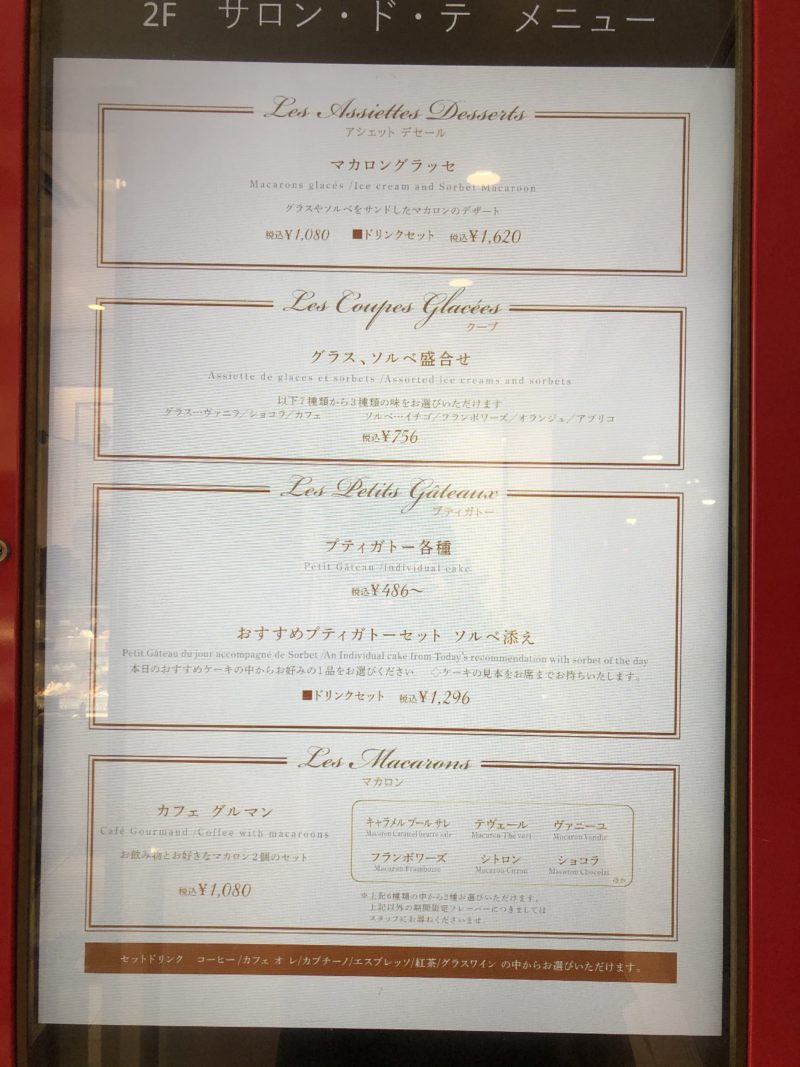 2F サロン・ド・テ メニュー
Les Assiettes Desserts
アシェット デセール
マカロングラッセ
Macarons glacés /Ice cream and Sorbet Macaroon
グラスやソルベをサンドしたマカロンのデザート
税込¥1,080 ■ドリンクセット 税込¥1,620
Les Coupes Glacées
クープ
グラス、ソルベ盛合せ
Assiette de glaces et sorbets /Assorted ice creams and sorbets
以下7種類から3種類の味をお選びいただけます
グラス…ヴァニラ／ショコラ／カフェ ソルベ…イチゴ／フランボワーズ／オランジュ／アブリコ
税込¥756
Les Petits Gâteaux
プティガトー
プティガトー各種
Petit Gâteau /Individual cake
税込¥486〜
おすすめプティガトーセット ソルベ添え
Petit Gâteau du jour accompagné de Sorbet /An Individual cake from Today's recommendation with sorbet of the day
本日のおすすめケーキの中からお好みの1品をお選びください ◇ケーキの見本をお席までお持ちいたします。
■ドリンクセット 税込¥1,296
Les Macarons
マカロン
カフェ グルマン
Café Gourmand /Coffee with macaroons
お飲み物とお好きなマカロン2個のセット
税込¥1,080
キャラメル ブール サレ テヴェール ヴァニーユ
Macaron Caramel beurre salé Macaron Thé vert Macaron Vanille
フランボワーズ シトロン ショコラ
Macaron Framboise Macaron Citron Macaron Chocolat
ほか
※上記6種類の中から2種お選びいただけます。
上記以外の期間限定フレーバーにつきましては
スタッフにお尋ねくださいませ。
セットドリンク コーヒー/カフェ オ レ/カプチーノ/エスプレッソ/紅茶/グラスワイン の中からお選びいただけます。